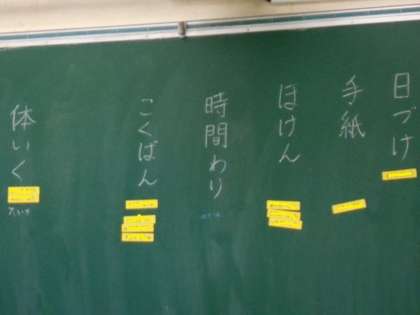 日づけ
手紙
ほけん
時間わり
こくばん
体いく